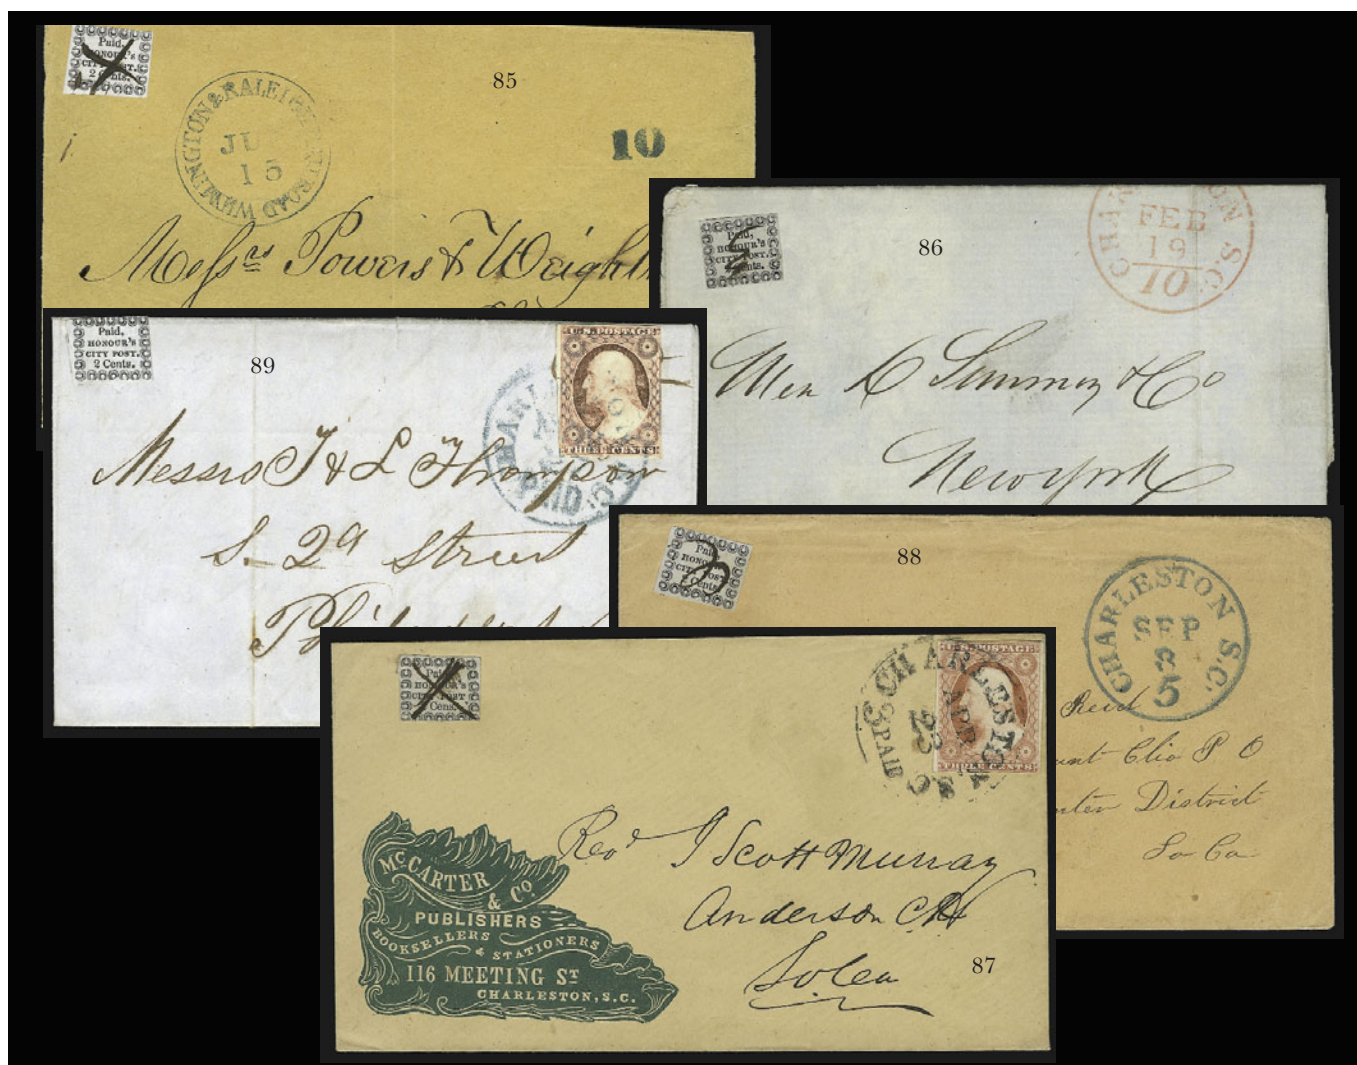 Paid,
HONOUR's
CITY POST.
2 Cents.
85
WILMINGTON & RALEIGH RAILROAD
JU
15
10
Messrs Powers & Weight
Paid,
HONOUR'S
CITY POST.
Cents.
86
CHA ON S.C.
FEB
19
10
New York
Paid,
HONOUR'S
CITY POST.
2 Cents.
89
U.S. POSTAGE
THREE CENTS
HARL
PAID
Messrs T & L Thompson
S. 2d Street
Paid,
HONOUR
CITY POST
Cents
88
CHARLESTON S.C.
SEP
5
Reid
unt Clio P O
ter District
So Ca
Paid
HONOUR'S
CITY POST
2 Cens.
CHARLESTON S.C.
APR
PAID
U.S. POSTAGE
THREE CENTS
McCARTER
& CO.
PUBLISHERS
BOOKSELLERS
& STATIONERS
116 MEETING ST
CHARLESTON, S.C.
Revd J Scott Murray
Anderson CH
So Ca
87